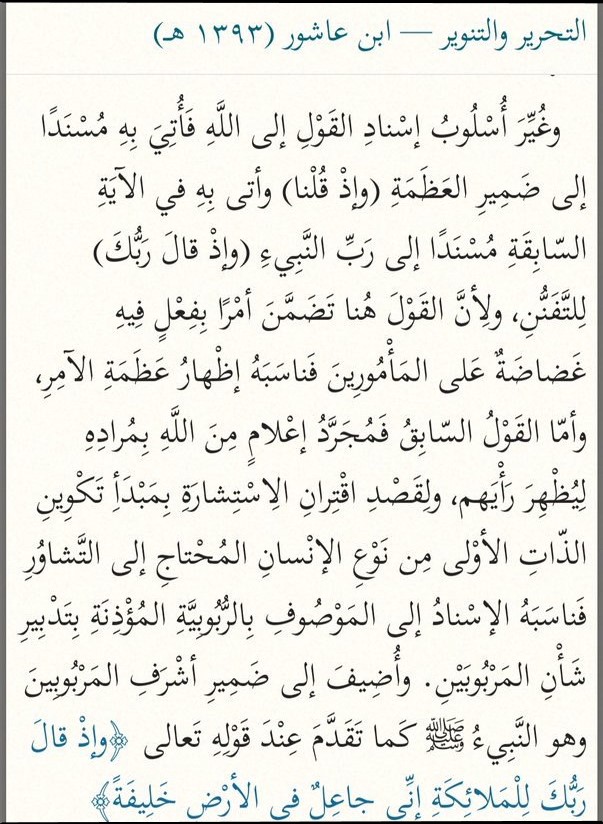 التحرير والتنوير — ابن عاشور (١٣٩٣ هـ)
وغُيِّرَ أُسْلُوبُ إسْنادِ القَوْلِ إلى اللَّهِ فَأُتِيَ بِهِ مُسْنَدًا
إلى ضَمِيرِ العَظَمَةِ (وإذْ قُلْنا) وأتى بِهِ في الآيَةِ
السّابِقَةِ مُسْنَدًا إلى رَبِّ النَّبِيءِ (وإذْ قالَ رَبُّكَ)
لِلتَّفَنُّنِ، ولِأنَّ القَوْلَ هُنا تَضَمَّنَ أمْرًا بِفِعْلٍ فِيهِ
غَضاضَةٌ عَلى المَأْمُورِينَ فَناسَبَهُ إظْهارُ عَظَمَةِ الآمِرِ،
وأمّا القَوْلُ السّابِقُ فَمُجَرَّدُ إعْلامٍ مِنَ اللَّهِ بِمُرادِهِ
لِيُظْهِرَ رَأْيَهم، ولِقَصْدِ اقْتِرانِ الِاسْتِشارَةِ بِمَبْدَأِ تَكْوِينِ
الذّاتِ الأوْلى مِن نَوْعِ الإنْسانِ المُحْتاجِ إلى التَّشاوُرِ
فَناسَبَهُ الإسْنادُ إلى المَوْصُوفِ بِالرُّبُوبِيَّةِ المُؤْذِنَةِ بِتَدْبِيرِ
شَأْنِ المَرْبُوبَيْنِ. وأُضِيفَ إلى ضَمِيرِ أشْرَفِ المَرْبُوبِينَ
وهو النَّبِيءُ ﷺ كَما تَقَدَّمَ عِنْدَ قَوْلِهِ تَعالى ﴿وإذْ قالَ
رَبُّكَ لِلْمَلائِكَةِ إنِّي جاعِلٌ في الأرْضِ خَلِيفَةً﴾